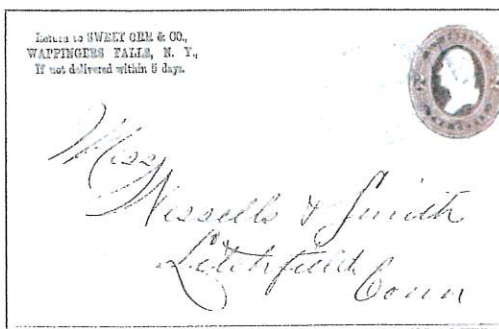 Return to SWEET ORR & CO.,
WAPPINGERS FALLS, N. Y.,
If not delivered within 5 days.
Miss
Wessells & Smith
Litchfield
Conn